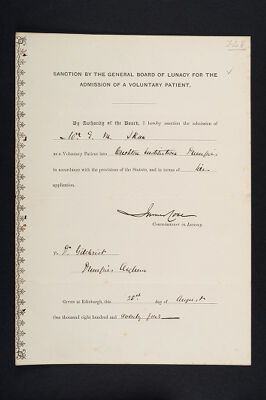 SANCTION BY THE GENERAL BOARD OF LUNACY FOR THE
ADMISSION OF A VOLUNTARY PATIENT.
By Authority of the Board, I hereby sanction the admission of
as a Voluntary Patient into Crichton Institution Dumfries
in accordance with the provisions of the Statute, and in terms of her
application.
COMMISSIONER IN LUNACY.
To Dr Gilchrist
Dumfries Asylum
GIVEN at EDINBURGH, this 28th day of August
One thousand eight hundred and seventy four